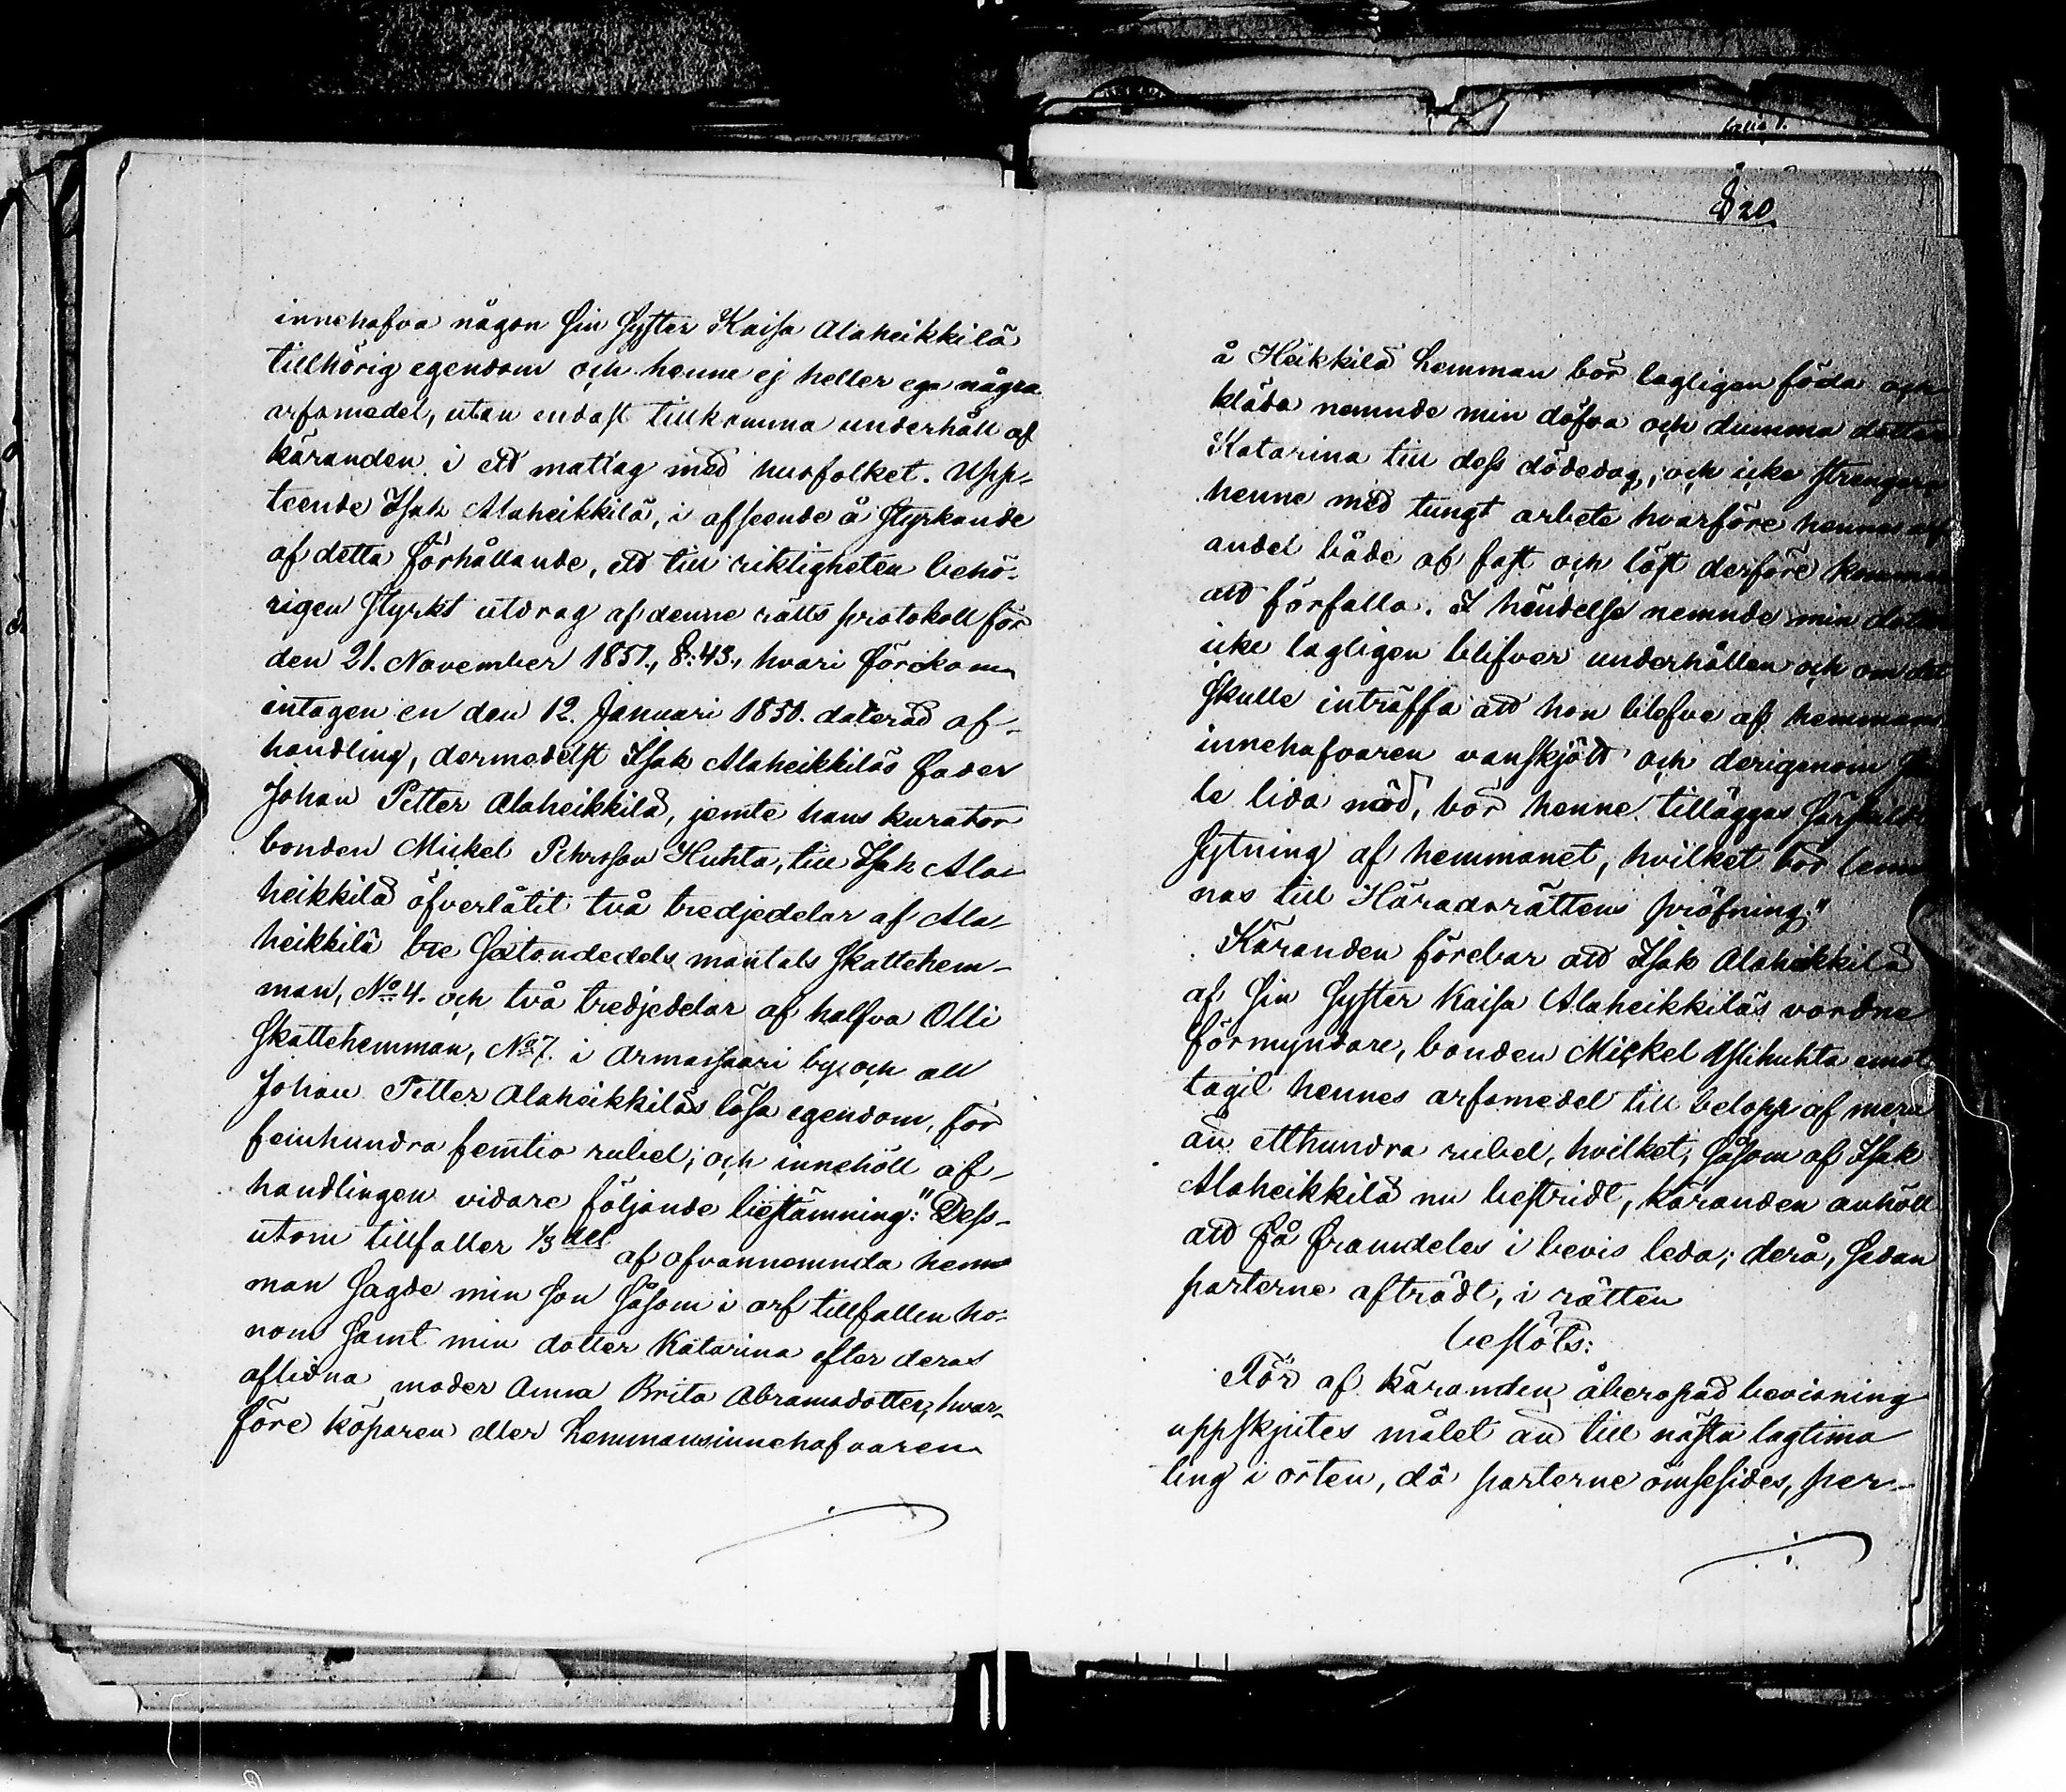 innehafva någon sin syster Kaisa Alaheikkilä
tillhörig egendom och henne ej heller ega några
arfsmedel, utan endast tillkomma underhåll af
käranden i ett matlag med husfolket. Upp-
teende Isak Alaheikkilä, i afseende å styrkande
af detta förhållande, ett till riktigheten behö-
rigen styrkt utdrag af denne rätts protokoll för
den 21. November 1851., §. 43., hvari förekom
intagen en den 12. Januari 1850. daterad af-
handling, dermedelst Isak Alaheikkiläs fader
Johan Petter Alaheikkilä, jemte hans kurator
bonden Mickel Pehrsson Huhta, till Isak Ala-
heikkilä öfverlåtit två tredjedelar af Ala-
heikkilä tre sextondedels mantals skattehem-
man, No 4. och två tredjedelar af halfva Olli
skattehemman, No 7. i Armassaari by och all
Johan Petter Alaheikkiläs lösa egendom, för
femhundra femtio rubel; och innehöll af-
handlingen vidare följande bestämning: "Dess-
utom tillfaller 1/3 del af ofvannemnda hem-
man sagde min son såsom i arf tillfallen ho-
nom samt min dotter Katarina efter deras
aflidna moder Anna Brita Abramsdotter, hvar-
före köparen eller hemmansinnehafvaren
§ 20
å Heikkilä hemman bör lagligen föda och
kläda nemnde min döfva och dumma dotter
Katarina till dess dödedag, och icke strengera
henne med tungt arbete hvarföre hennes arf
andel både af fast och löst derföre kommer
att förfalla. I händelse nemnde min dotter
icke lagligen blifver underhållen och om det
skulle inträffa att hon blefve af hemmans
innehafvaren vanskjött och derigenom skul
le lida nöd, bör henne tilläggas särskild
sytning af hemmanet, hvilket bör lem
nas till Häradsrättens pröfning."
Käranden förebar att Isak Alaheikkilä
af sin syster Kaisa Alaheikkiläs vordne
förmyndare, bonden Mickel Ylihuhta emot
tagit hennes arfsmedel till belopp af mera
än etthundra rubel, hvilket, såsom af Isak
Alaheikkilä nu bestridt, käranden anhöll
att få framdeles i bevis leda; derå, sedan
parterne afträdt, i rätten
beslöts:
För af käranden åberopad bevisning
uppskjutes målet än till nästa lagtima
ting i orten, då parterne ömsesides, per-